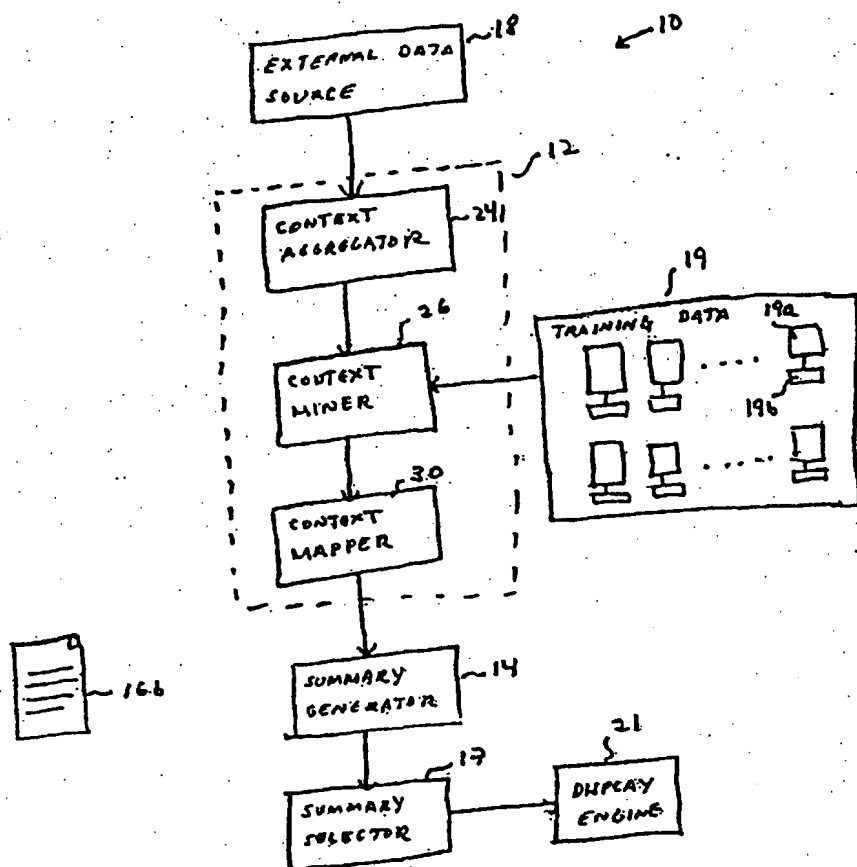 18
10
EXTERNAL DATA
SOURCE
12
CONTEXT
AGGREGATOR
24
19
TRAINING DATA
19a
26
CONTEXT
MINER
19b
30
CONTEXT
MAPPER
16b
SUMMARY
GENERATOR
14
17
21
SUMMARY
SELECTOR
DISPLAY
ENGINE